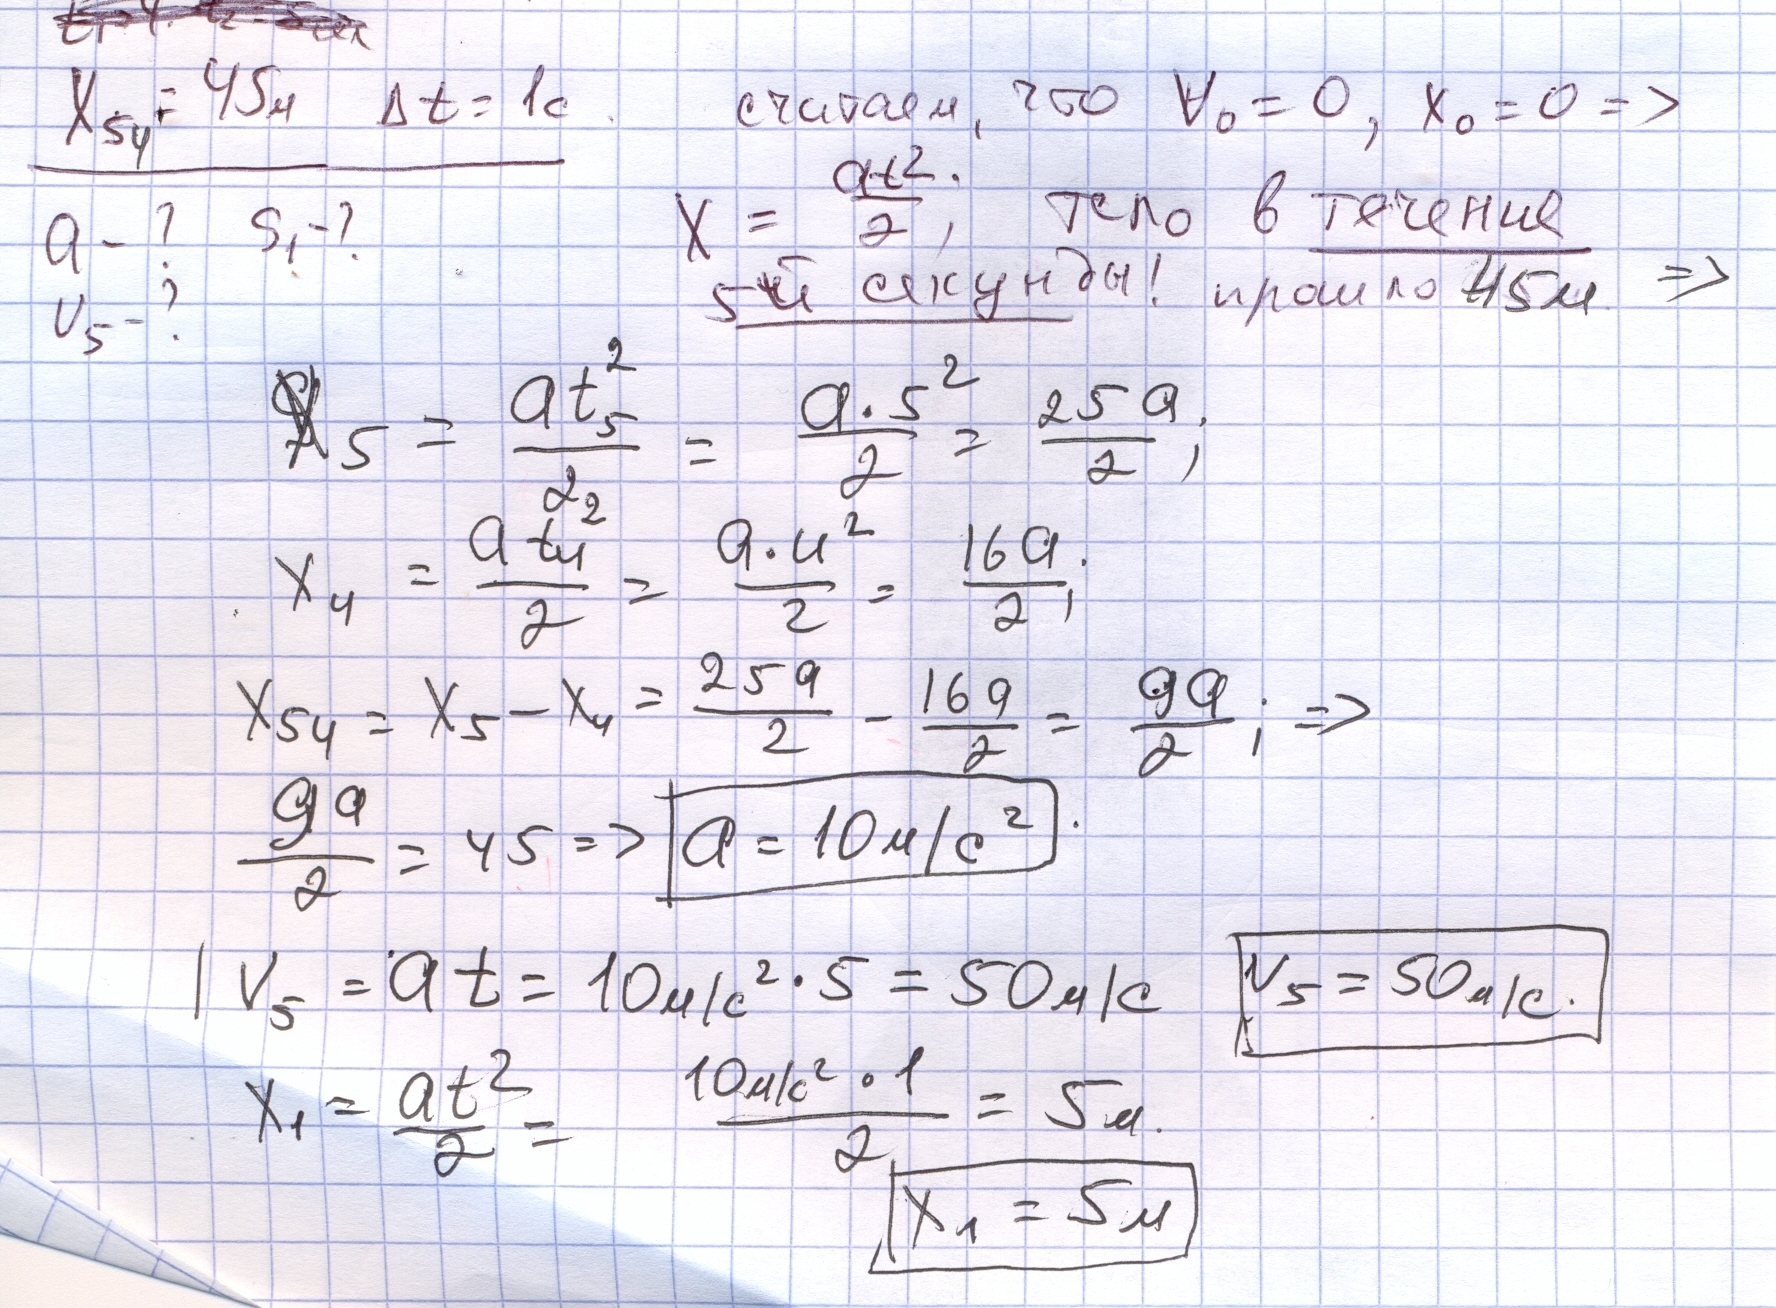 X₅₄ = 45м Δt = 1с.
a - ? S₁ - ?
V₅ - ?
считаем, что V₀ = 0, x₀ = 0 =>
X = at²/2; тело в течение
5ой секунды! прошло 45м =>
X₅ = at₅²/2 = a·5²/2 = 25a/2;
X₄ = at₄²/2 = a·4²/2 = 16a/2;
X₅₄ = X₅ - X₄ = 25a/2 - 16a/2 = 9a/2; =>
9a/2 = 45 => a = 10м/с².
V₅ = at = 10м/с²·5 = 50м/с V₅ = 50м/с.
X₁ = at²/2 = 10м/с²·1/2 = 5м.
X₁ = 5м